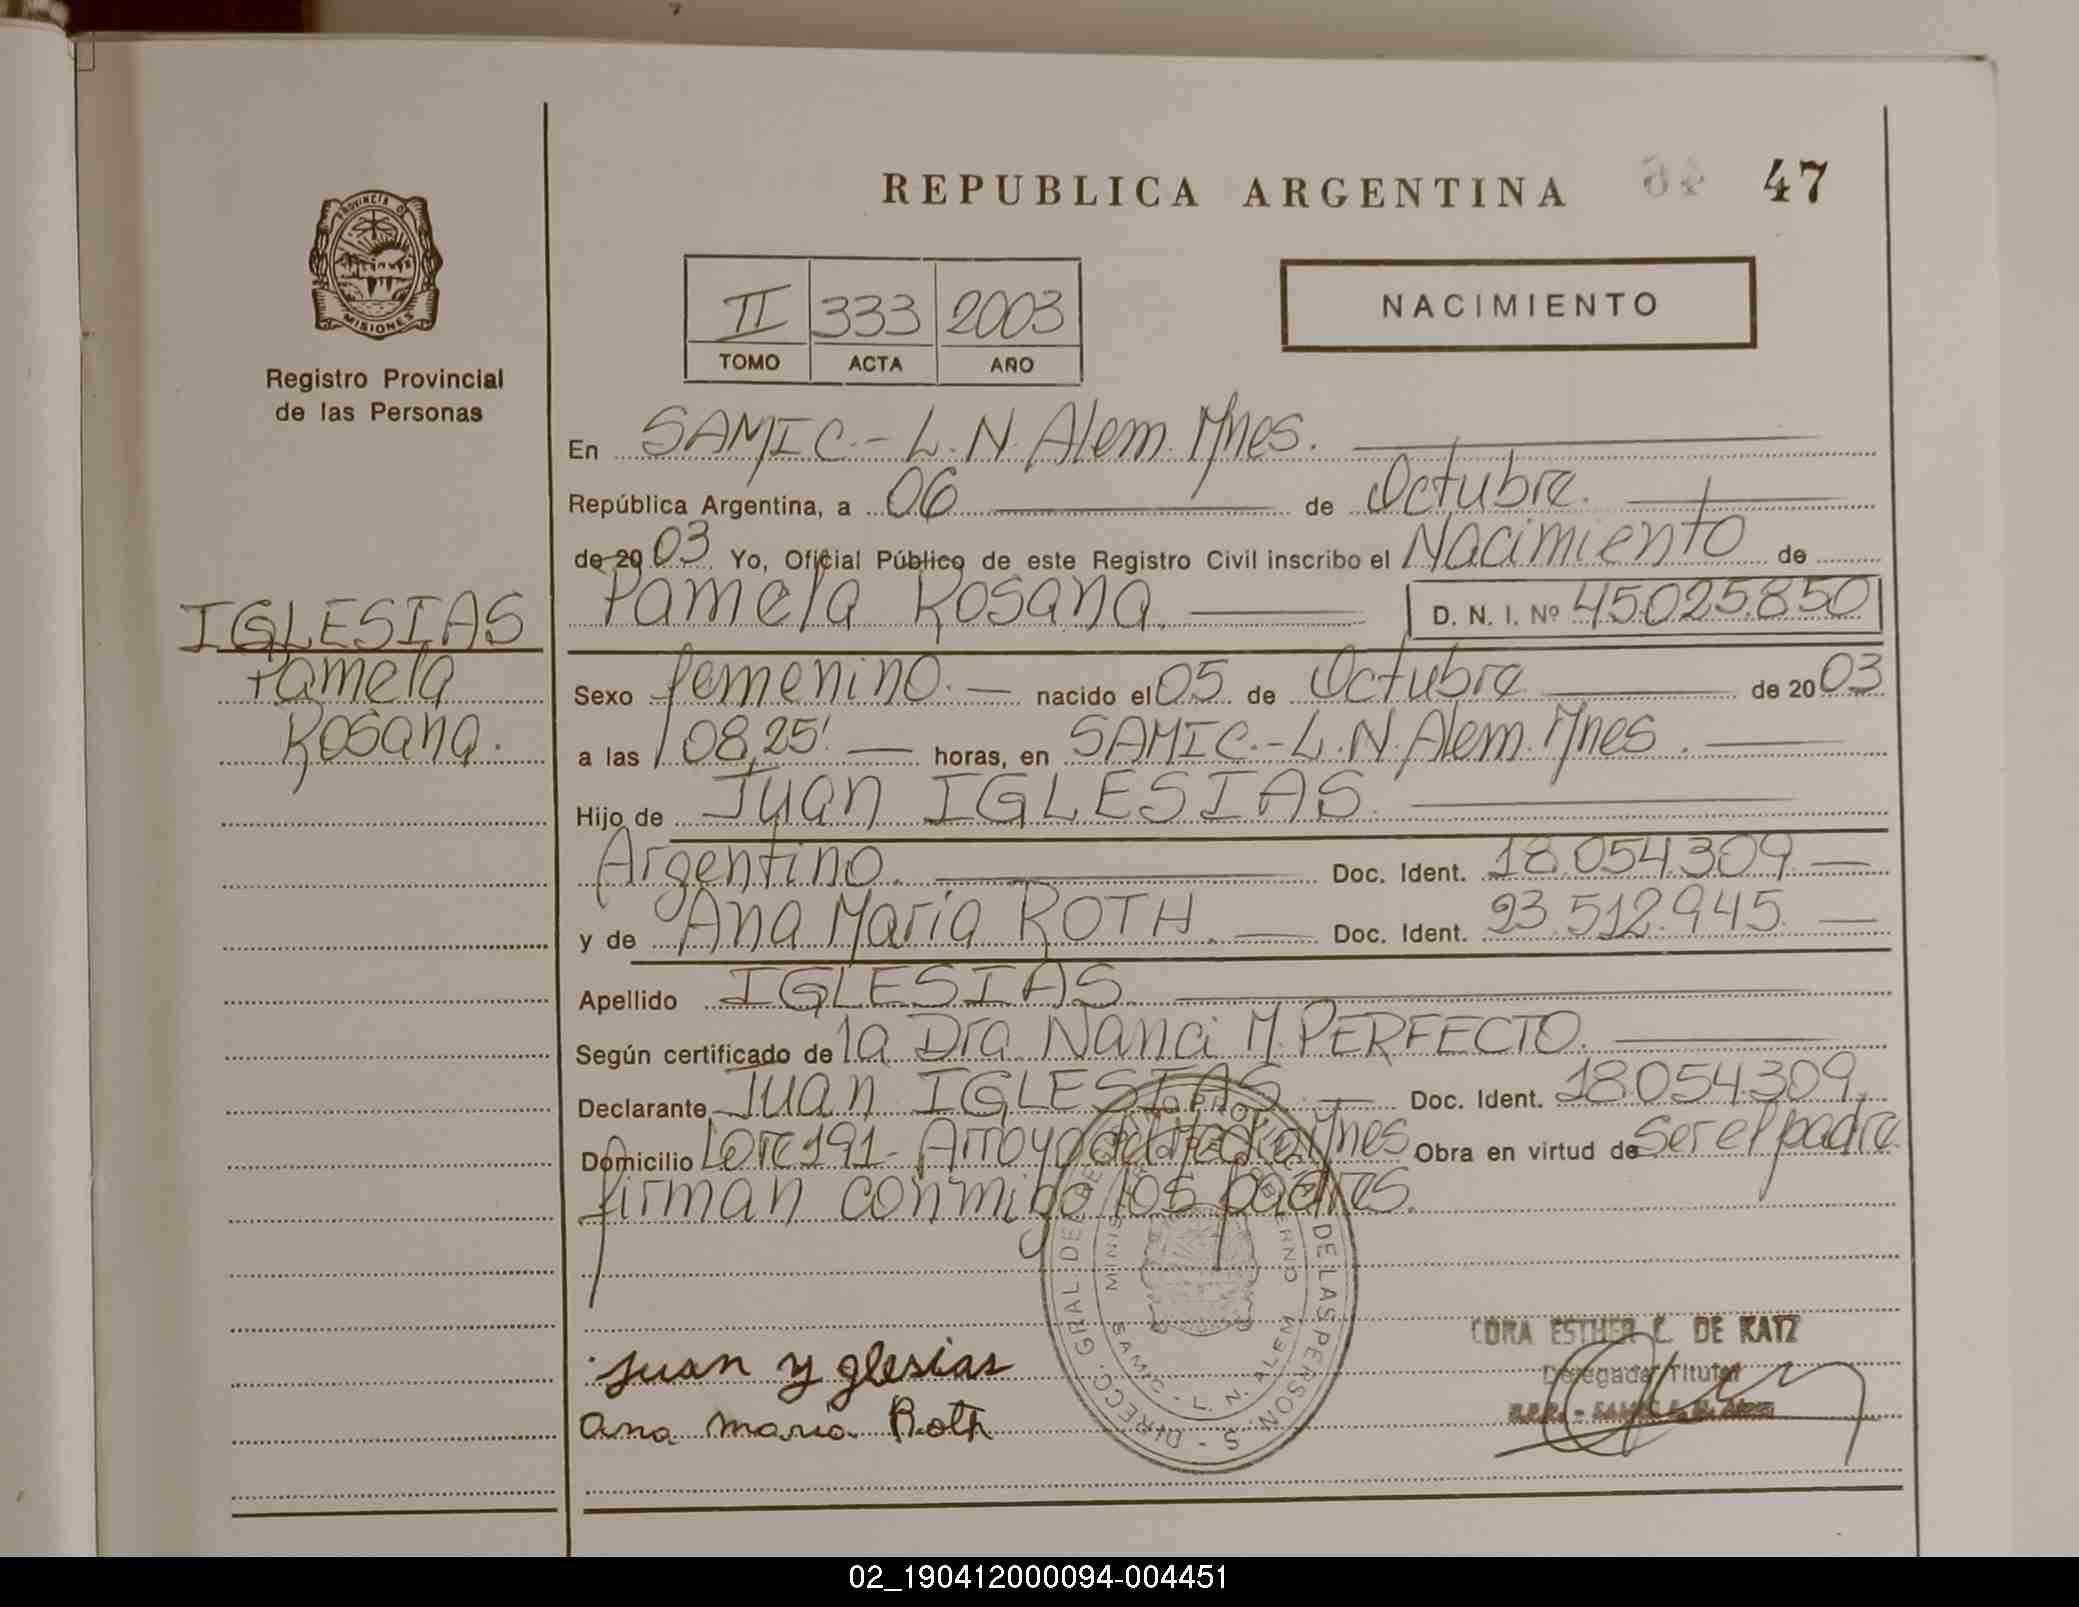 REPUBLICA ARGENTINA 47
PROVINCIA DE
MISIONES
Registro Provincial
de las Personas
II 333 2003
TOMO ACTA AÑO
NACIMIENTO
En SAMIC.- L.N. Alem. Mnes.
República Argentina, a 06 de Octubre.
de 2003 Yo, Oficial Público de este Registro Civil inscribo el Nacimiento de
Pamela Rosana. D. N. I. Nº 45025.850
IGLESIAS
Pamela
Rosana.
Sexo femenino.- nacido el 05 de Octubre de 2003
a las 08,25' horas, en SAMIC.- L.N. Alem. Mnes.
Hijo de Juan IGLESIAS.
Argentino. Doc. Ident. 18.054.309
y de Ana María ROTH. Doc. Ident. 93.512.945
Apellido IGLESIAS.
Según certificado de la Dra. Nanci M. PERFECTO.
Declarante Juan IGLESIAS Doc. Ident. 18.054.309.
Domicilio Lote 191- Arroyo del Medio Mnes Obra en virtud de Ser el padre.
firman conmigo los padres.
DIRECC. GRAL. DEL DE LAS PERSONAS
SAMIC - L. N. ALEM
CORA ESTHER C. DE KATZ
Delegada Titular
Juan Yglesias
Ana María Roth
02_190412000094-004451